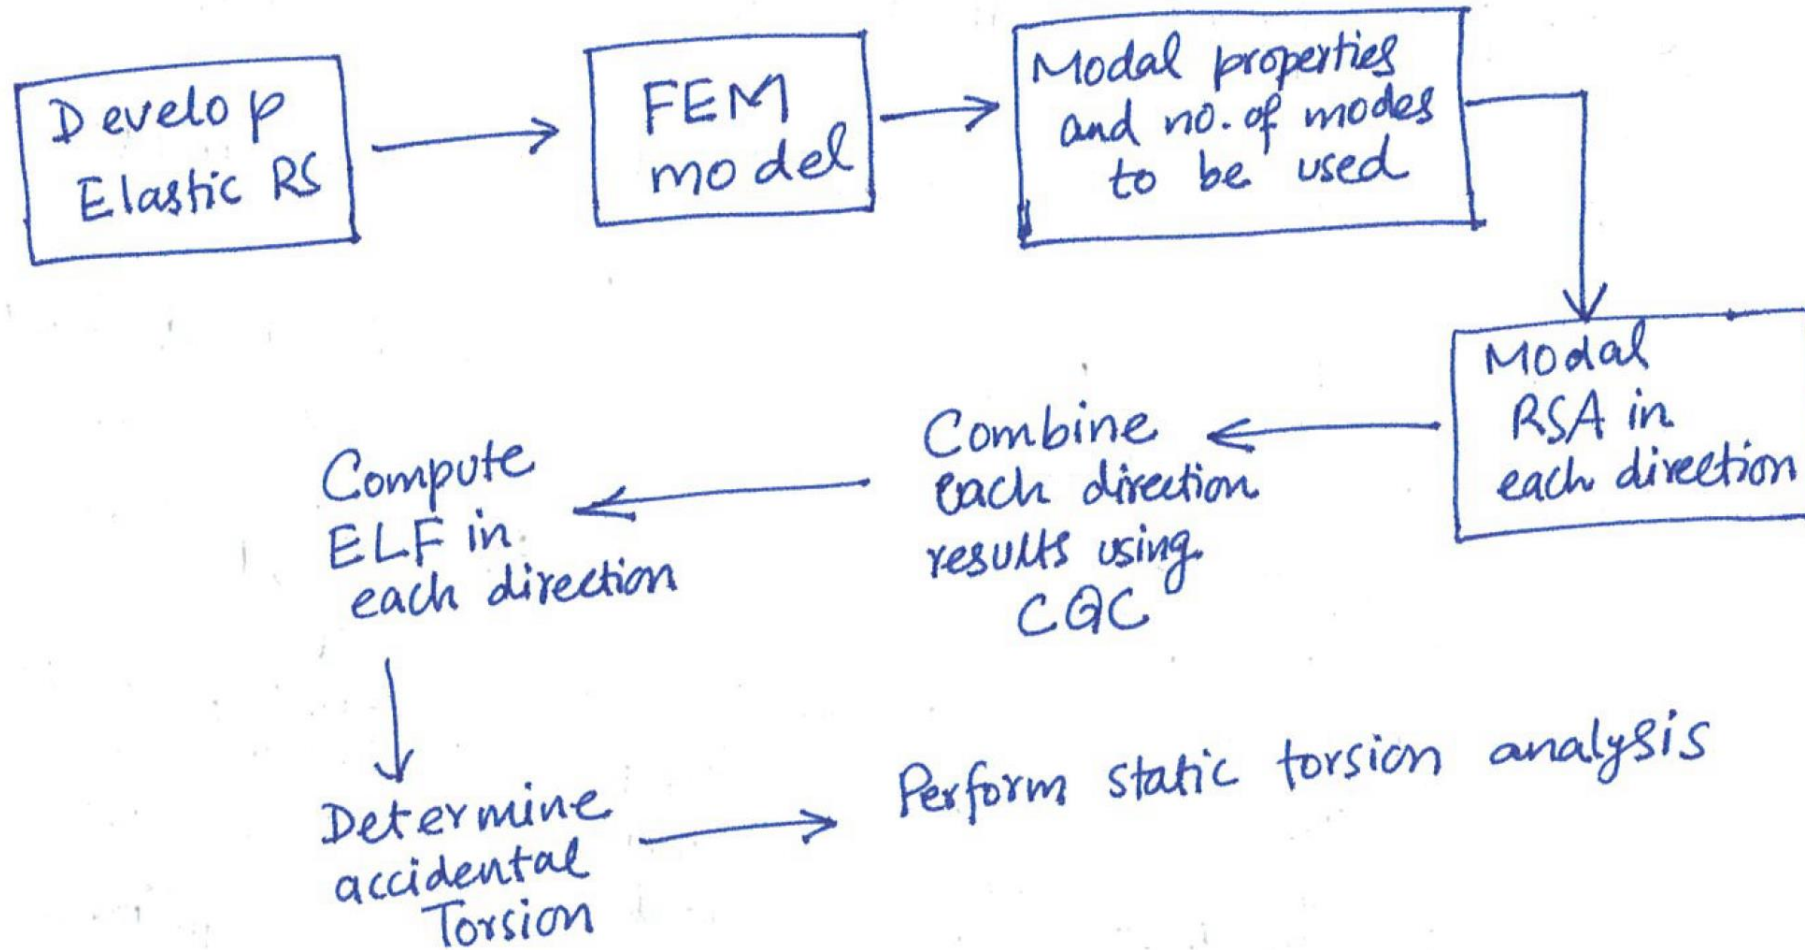 Develop
Elastic RS
FEM
model
Modal properties
and no. of modes
to be used
Modal
RSA in
each direction
Combine
each direction
results using
CQC
Compute
ELF in
each direction
Determine
accidental
Torsion
Perform static torsion analysis